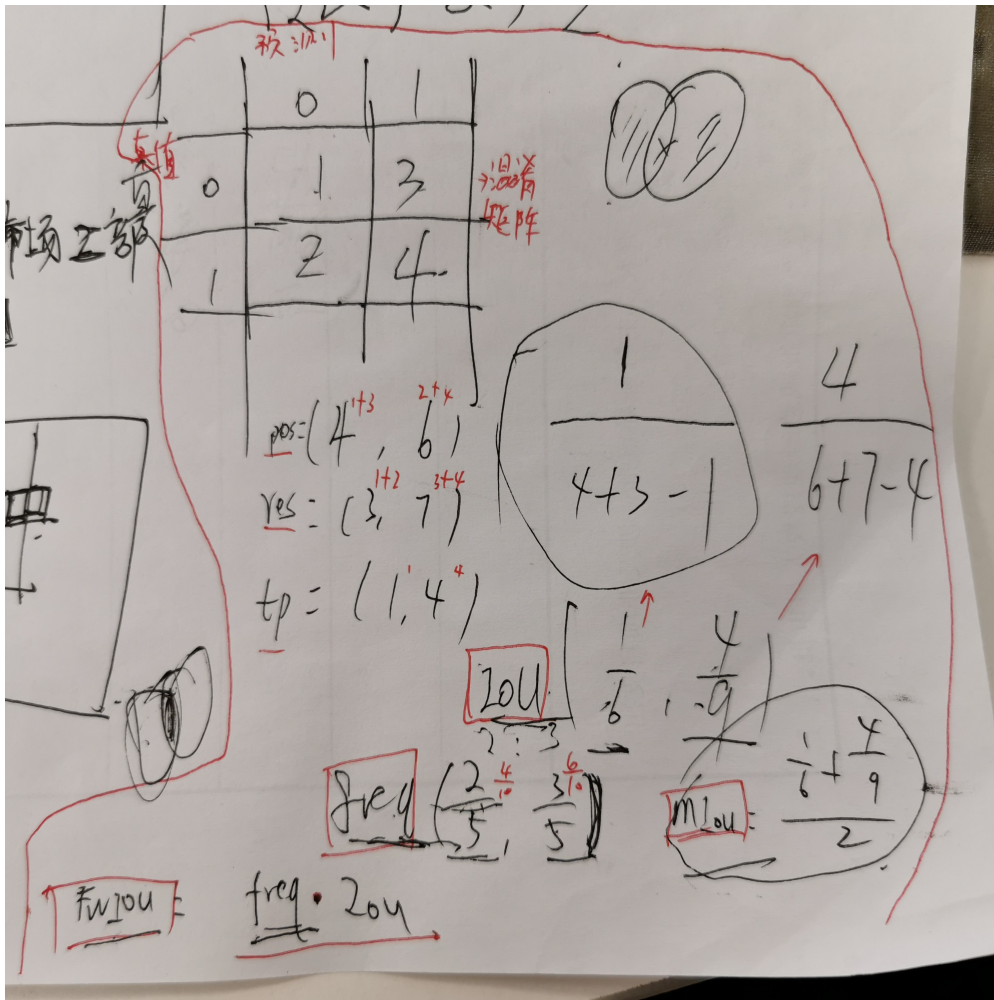 预测
0 1
真值
0 1 3
混淆
矩阵
市场工部
1 2 4
pos=(4 1+3, 6 2+4)
res=(3 1+2, 7 3+4)
tp=(1 1, 4 4)
1
4+3-1
4
6+7-4
IOU [1/6, 4/9]
2:3
freq (2/5 4/10, 3/5 6/10)
MIou= (1/6+4/9)/2
FWIOU= freq·IOU